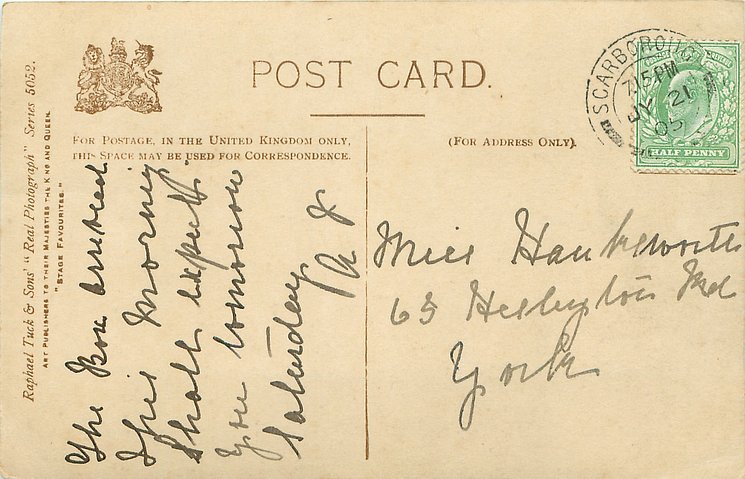 POST CARD.
FOR POSTAGE, IN THE UNITED KINGDOM ONLY,
THIS SPACE MAY BE USED FOR CORRESPONDENCE.
(FOR ADDRESS ONLY).
Raphael Tuck & Sons' "Real Photograph" Series 5052.
ART PUBLISHERS TO THEIR MAJESTIES THE KING AND QUEEN.
"STAGE FAVOURITES."
SCARBOROUGH
7.15PM
JY 21
05
HALF PENNY
The Box arrived
this morning
Shall expect
you tomorrow
Saturday
Miss Hawksworth
65 Heslington Rd
York